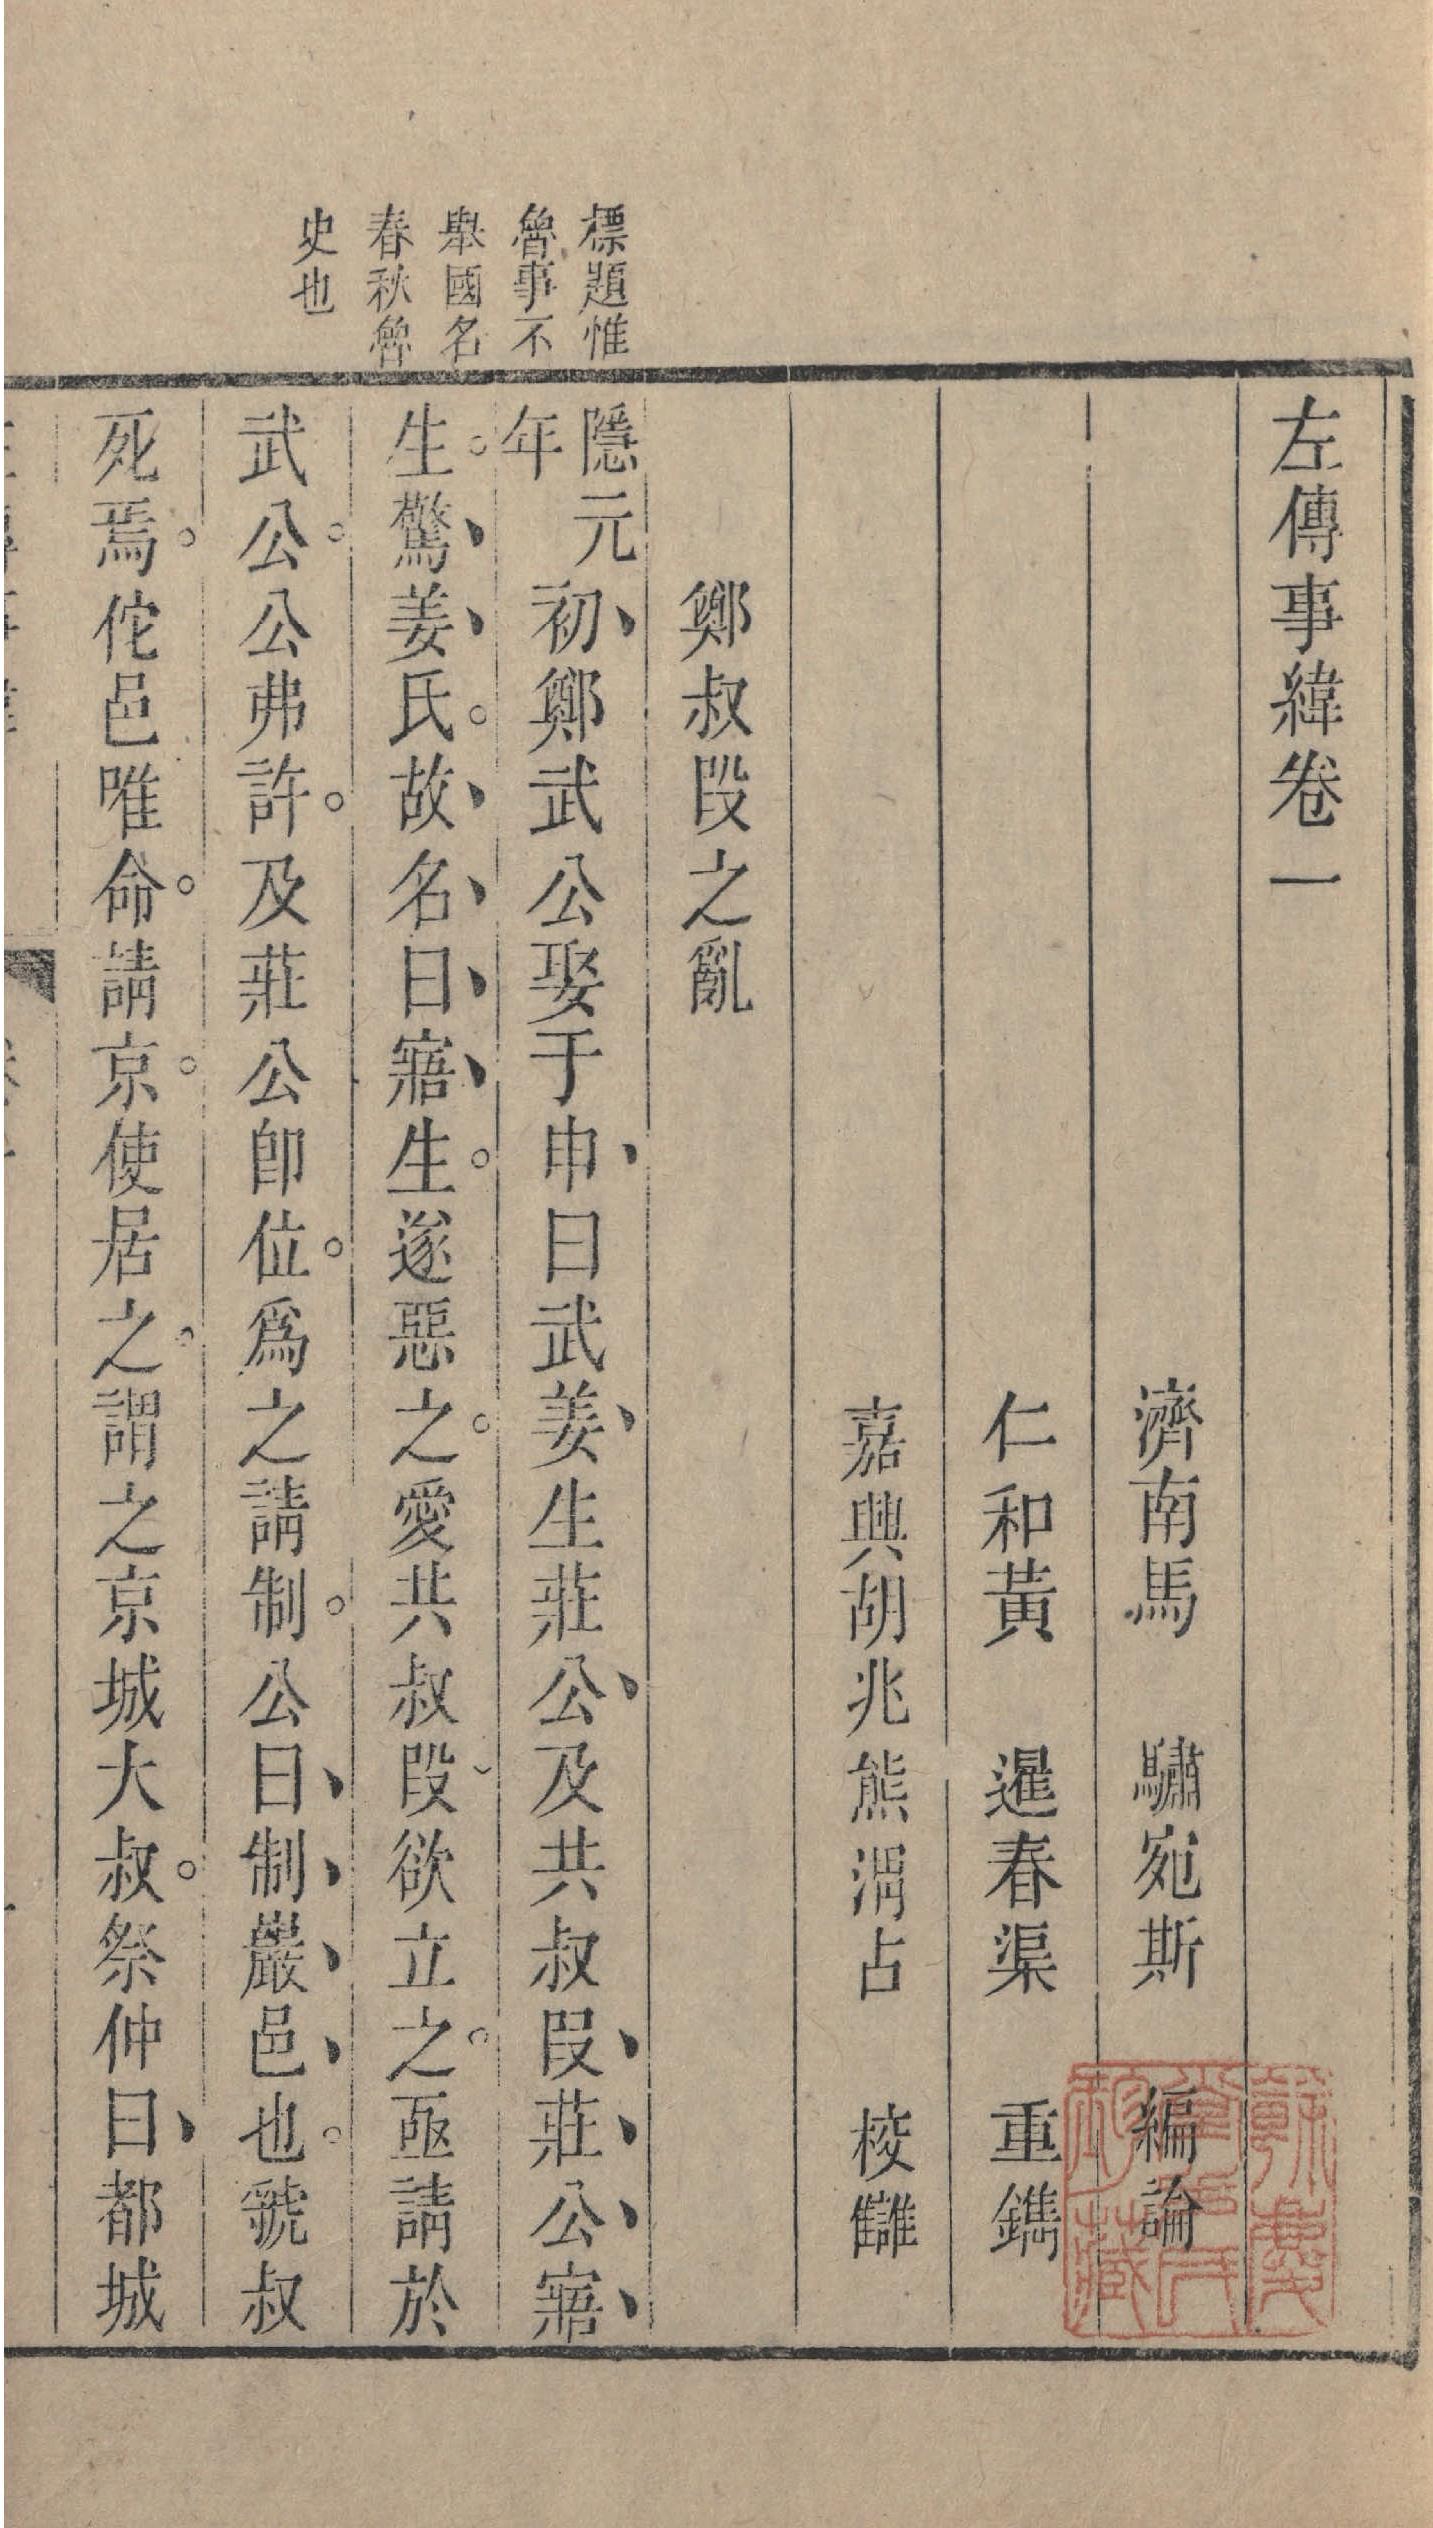 左傳事緯卷一
濟南馬　驌宛斯　編論
仁和黃　暹春渠　重鐫
嘉興胡兆熊渭占　校讎
鄭叔段之亂
標題惟
魯事不
舉國名
春秋魯
史也
隱元
年
初鄭武公娶于申曰武姜生莊公及共叔段莊公寤
生驚姜氏故名曰寤生遂惡之愛共叔段欲立之亟請於
武公公弗許及莊公卽位爲之請制公曰制巖邑也虢叔
死焉佗邑唯命請京使居之謂之京城大叔祭仲曰都城